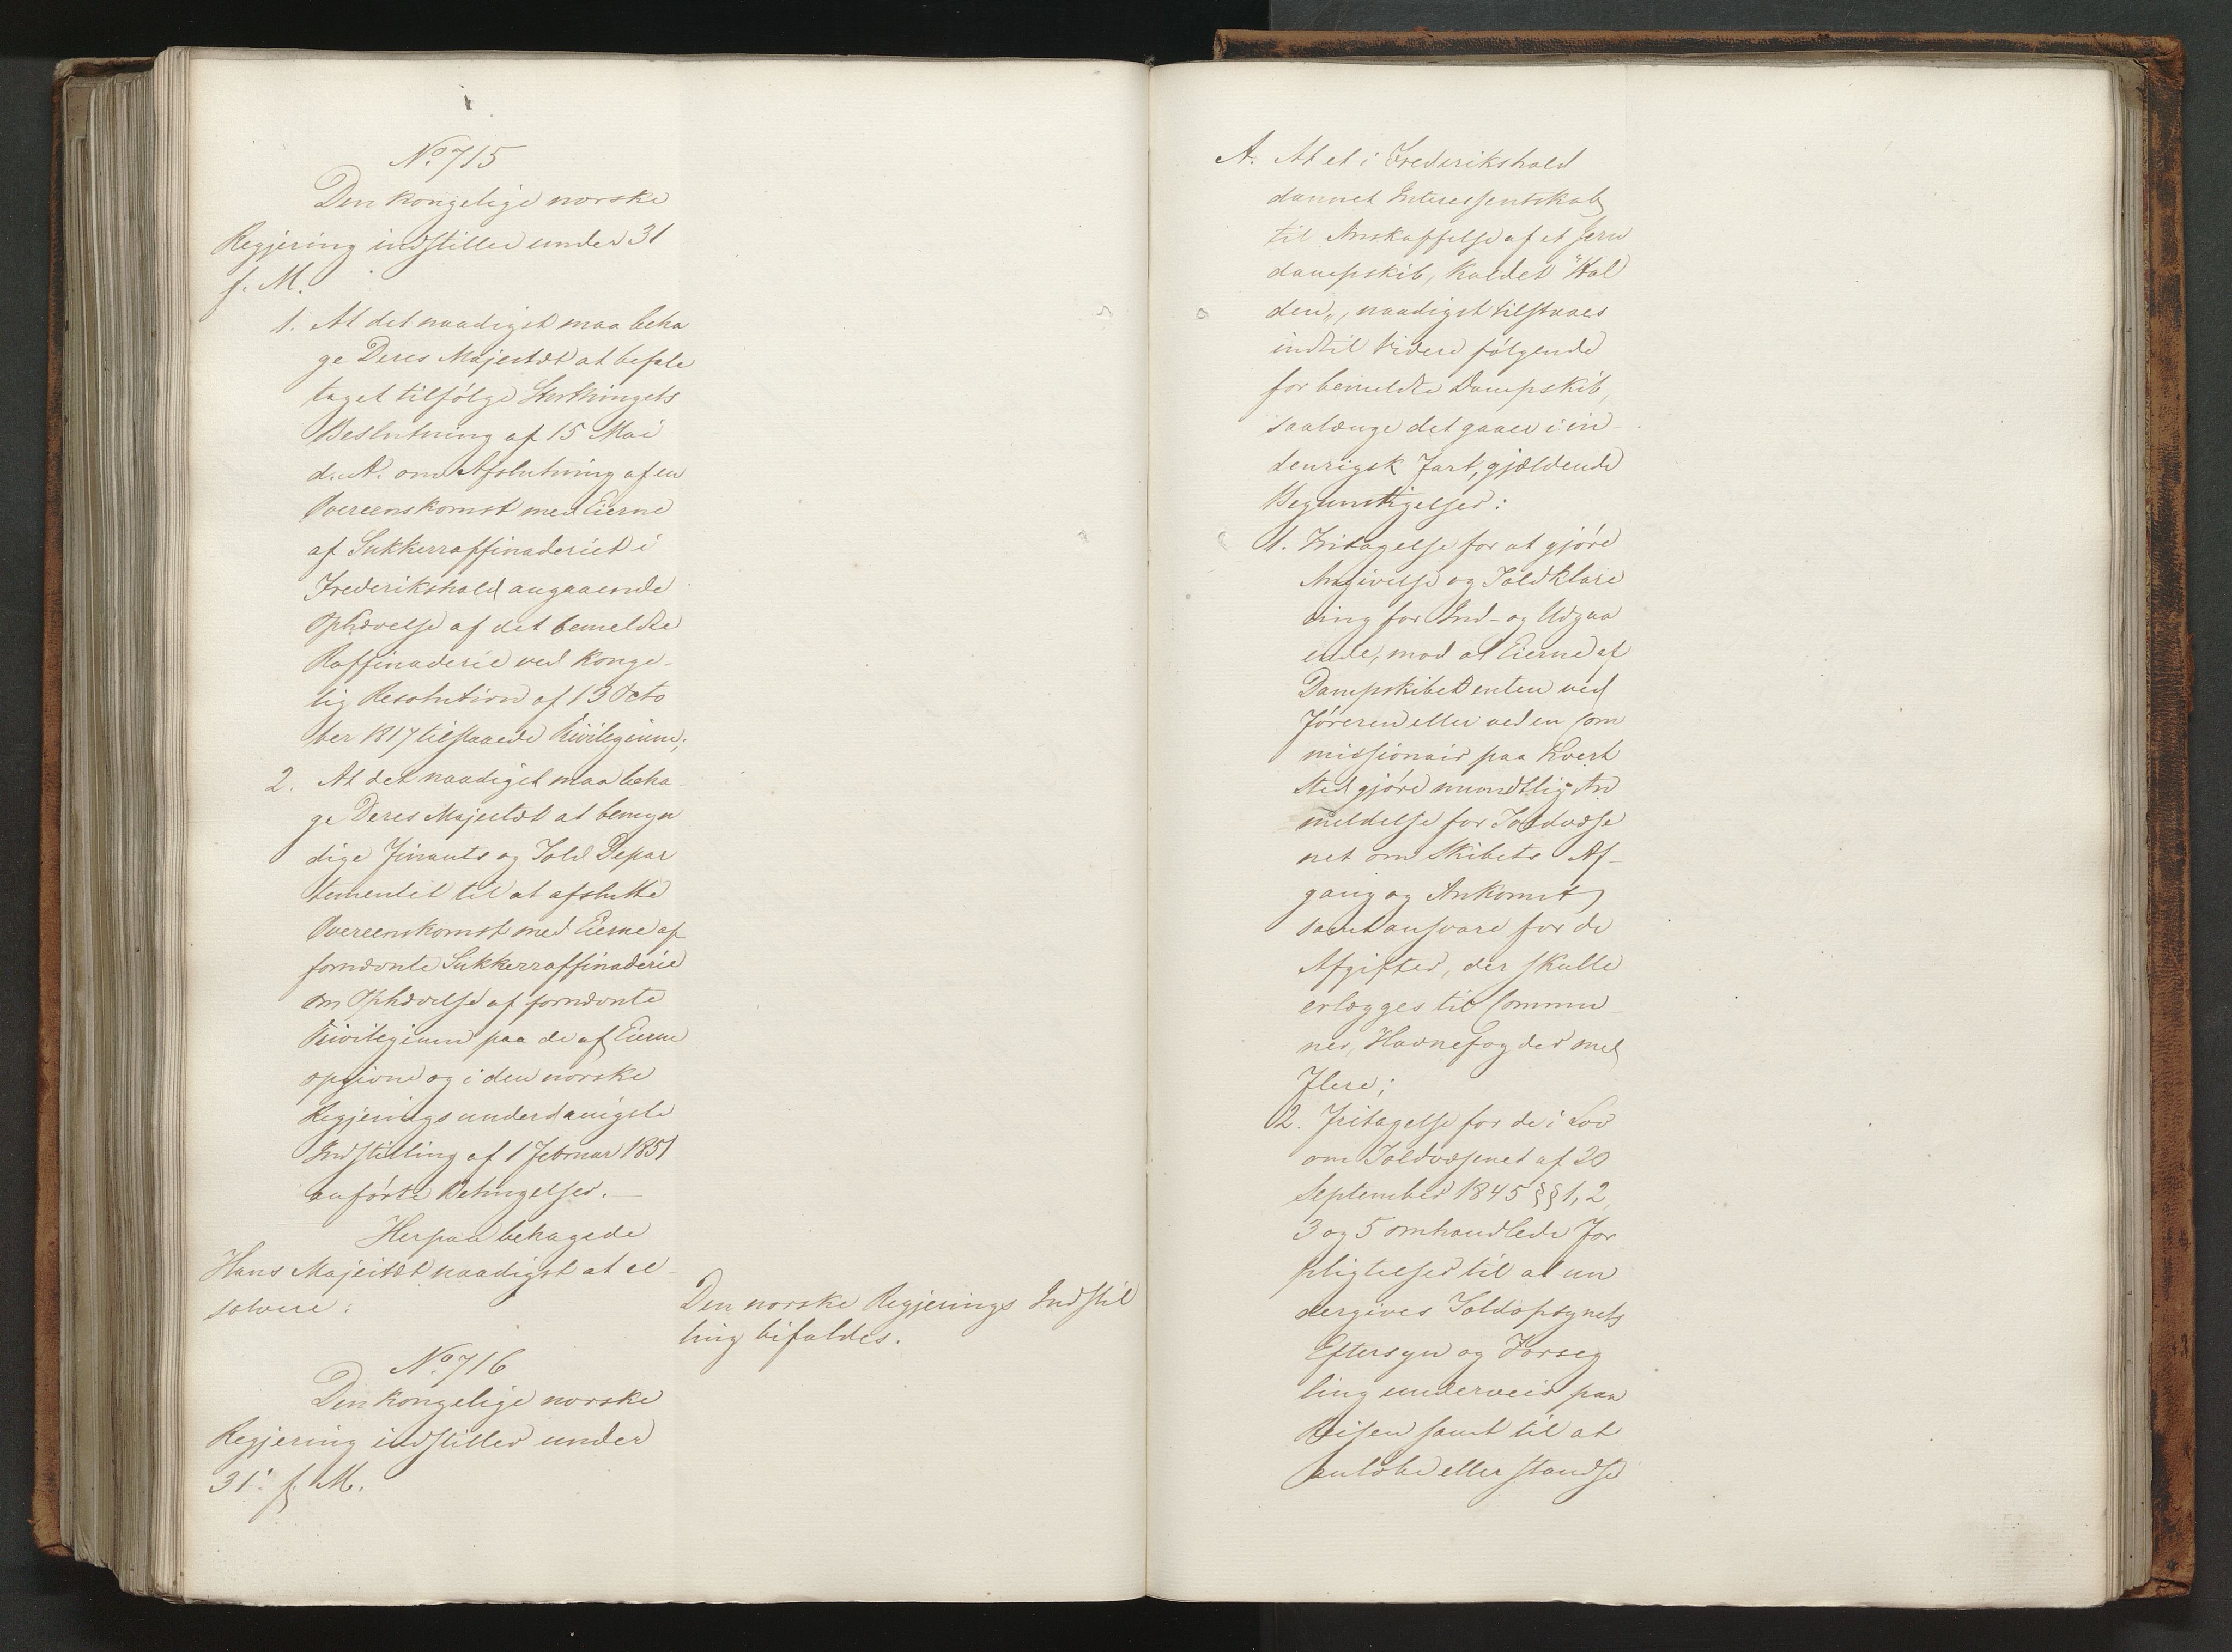 No. 715
Den kongelige norske
Regjering indstiller under 31
f. M.
1. At det naadigst maa beha
ge Deres Majestæt at befale
taget tilfølge Storthingets
Beslutning af 15 Mai
d. A. om Afslutning af en
Overeenskomst med Eierne
af Sukkerraffinaderiet i
Frederikshald angaaende
Ophævelse af det bemeldte
Raffinaderie ved Konge-
lig Resolution af 13 Octo
ber 1817 tilstaaede Privilegium;
2. At det naadigst maa beha
ge Deres Majestæt at bemyn
dige Finants og Told Depar
tementet til at afslutte
Overeenskomst med Eierne af
fornævnte Sukkerraffinaderie
om Ophævelse af fornævnte
Privilegium paa de af Eierne
opgivne og i den norske
Regjerings underdanigste
Indstilling af 1 Februar 1851
anførte Betingelser.
Herpaa behagede
Hans Majestæt naadigst at re-
solvere:
Den norske Regjerings Indstil
ling bifaldes.
No. 716
Den kongelige norske
Regjering indstiller under
31. f. M.
A. At et i Frederikshald
dannet Interessentskab
til Anskaffelse af et Jern
dampskib, kaldet "Hal
den", naadigst tilstaaes
indtil Videre følgende
for bemeldte Dampskib,
saalænge det gaaer i in-
denrigsk Fart, gjældende
Begunstigelser:
1. Fritagelse for at gjøre
Angivelse og Toldklare
ring for Ind- og Udgaa
ende, mod at Eierne af
Dampskibet enten ved
Føreren eller ved en Com
missionair paa hvert
Sted gjøre mundtlig An
meldelse for Toldvæse
net om Skibets Af-
gang og Ankomst
samt ansvare for de
Afgifter, der skulle
erlægges til Commu-
ner, Havnefogder med
Flere;
2. Fritagelse for de i Lov
om Toldvæsenet af 20
September 1845 §§ 1, 2,
3 og 5 omhandlede For
pligtelser til at un
dergives Toldopsynets
Eftersyn og Forseg
ling underveis paa
Reisen samt til at
anløbe eller standse